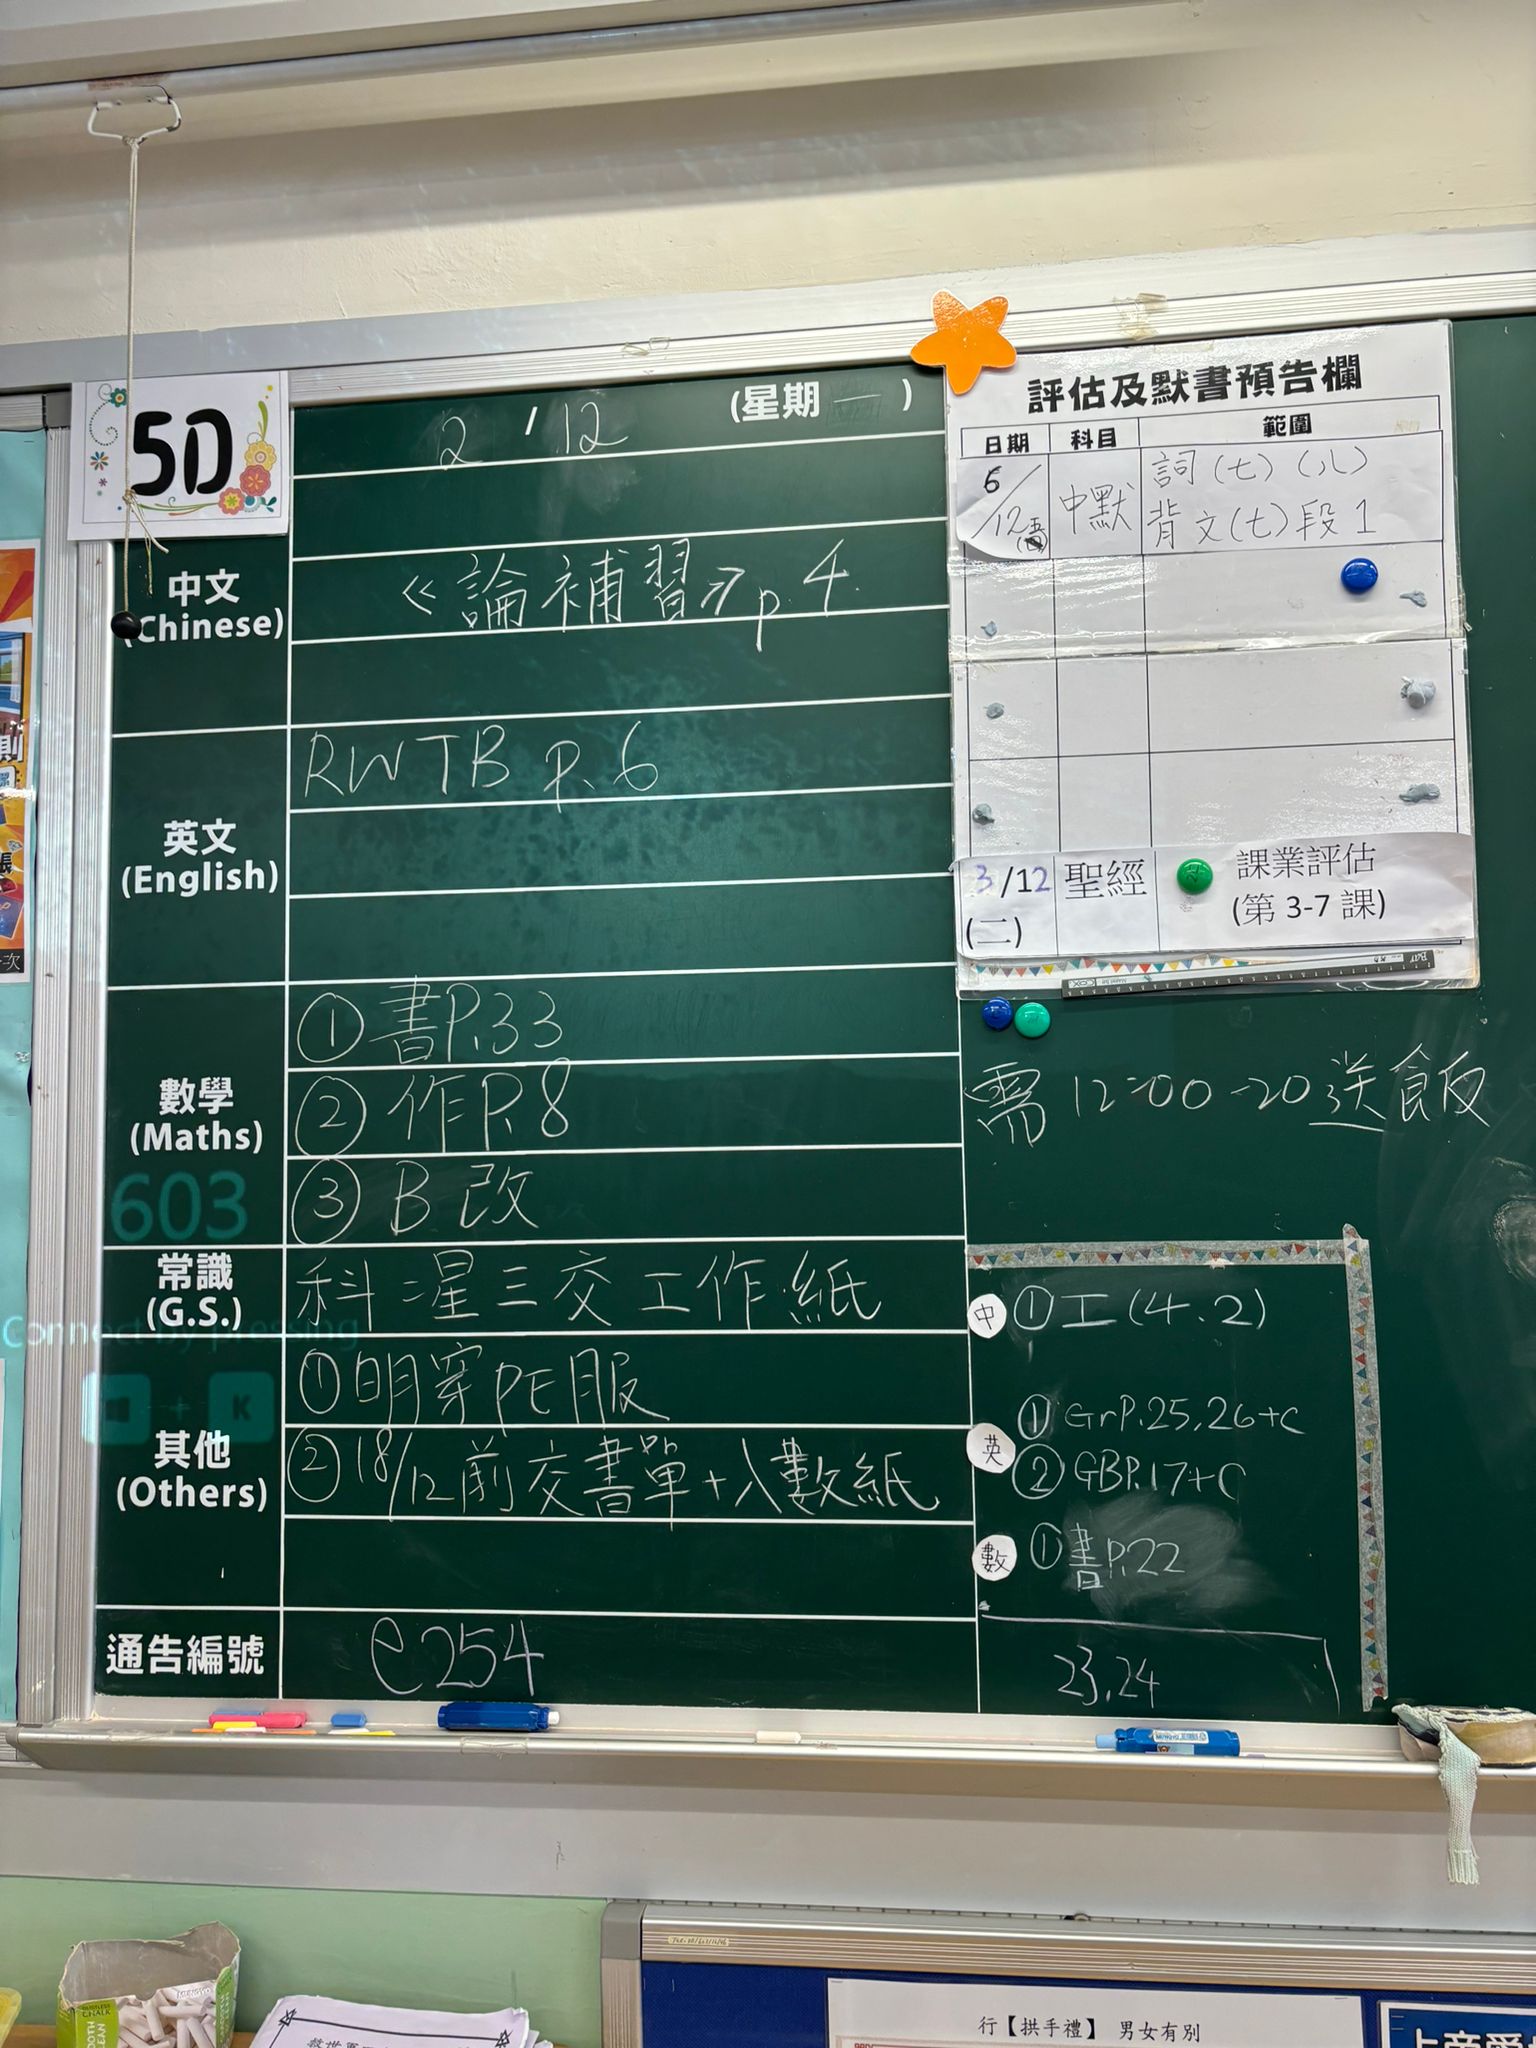 5D
2 / 12 (星期一)
中文
(Chinese)
《論補習》p.4
英文
(English)
RWTB p.6
數學
(Maths)
① 書P.33
② 作P.8
③ B 改
603
常識
(G.S.)
科 星三交工作紙
Connect by pressing
+ K
其他
(Others)
① 明穿PE服
② 18/12前交書單+入數紙
通告編號
e254
評估及默書預告欄
日期 科目 範圍
6/12 中默 詞(七)(八)
背文(七)段1
3/12 聖經 課業評估
(二) (第 3-7 課)
需 12:00-20送飯
中 ① 工(4.2)
英 ① GrP.25,26+C
② GBP.17+C
數 ① 書P.22
23,24
行【拱手禮】 男女有別